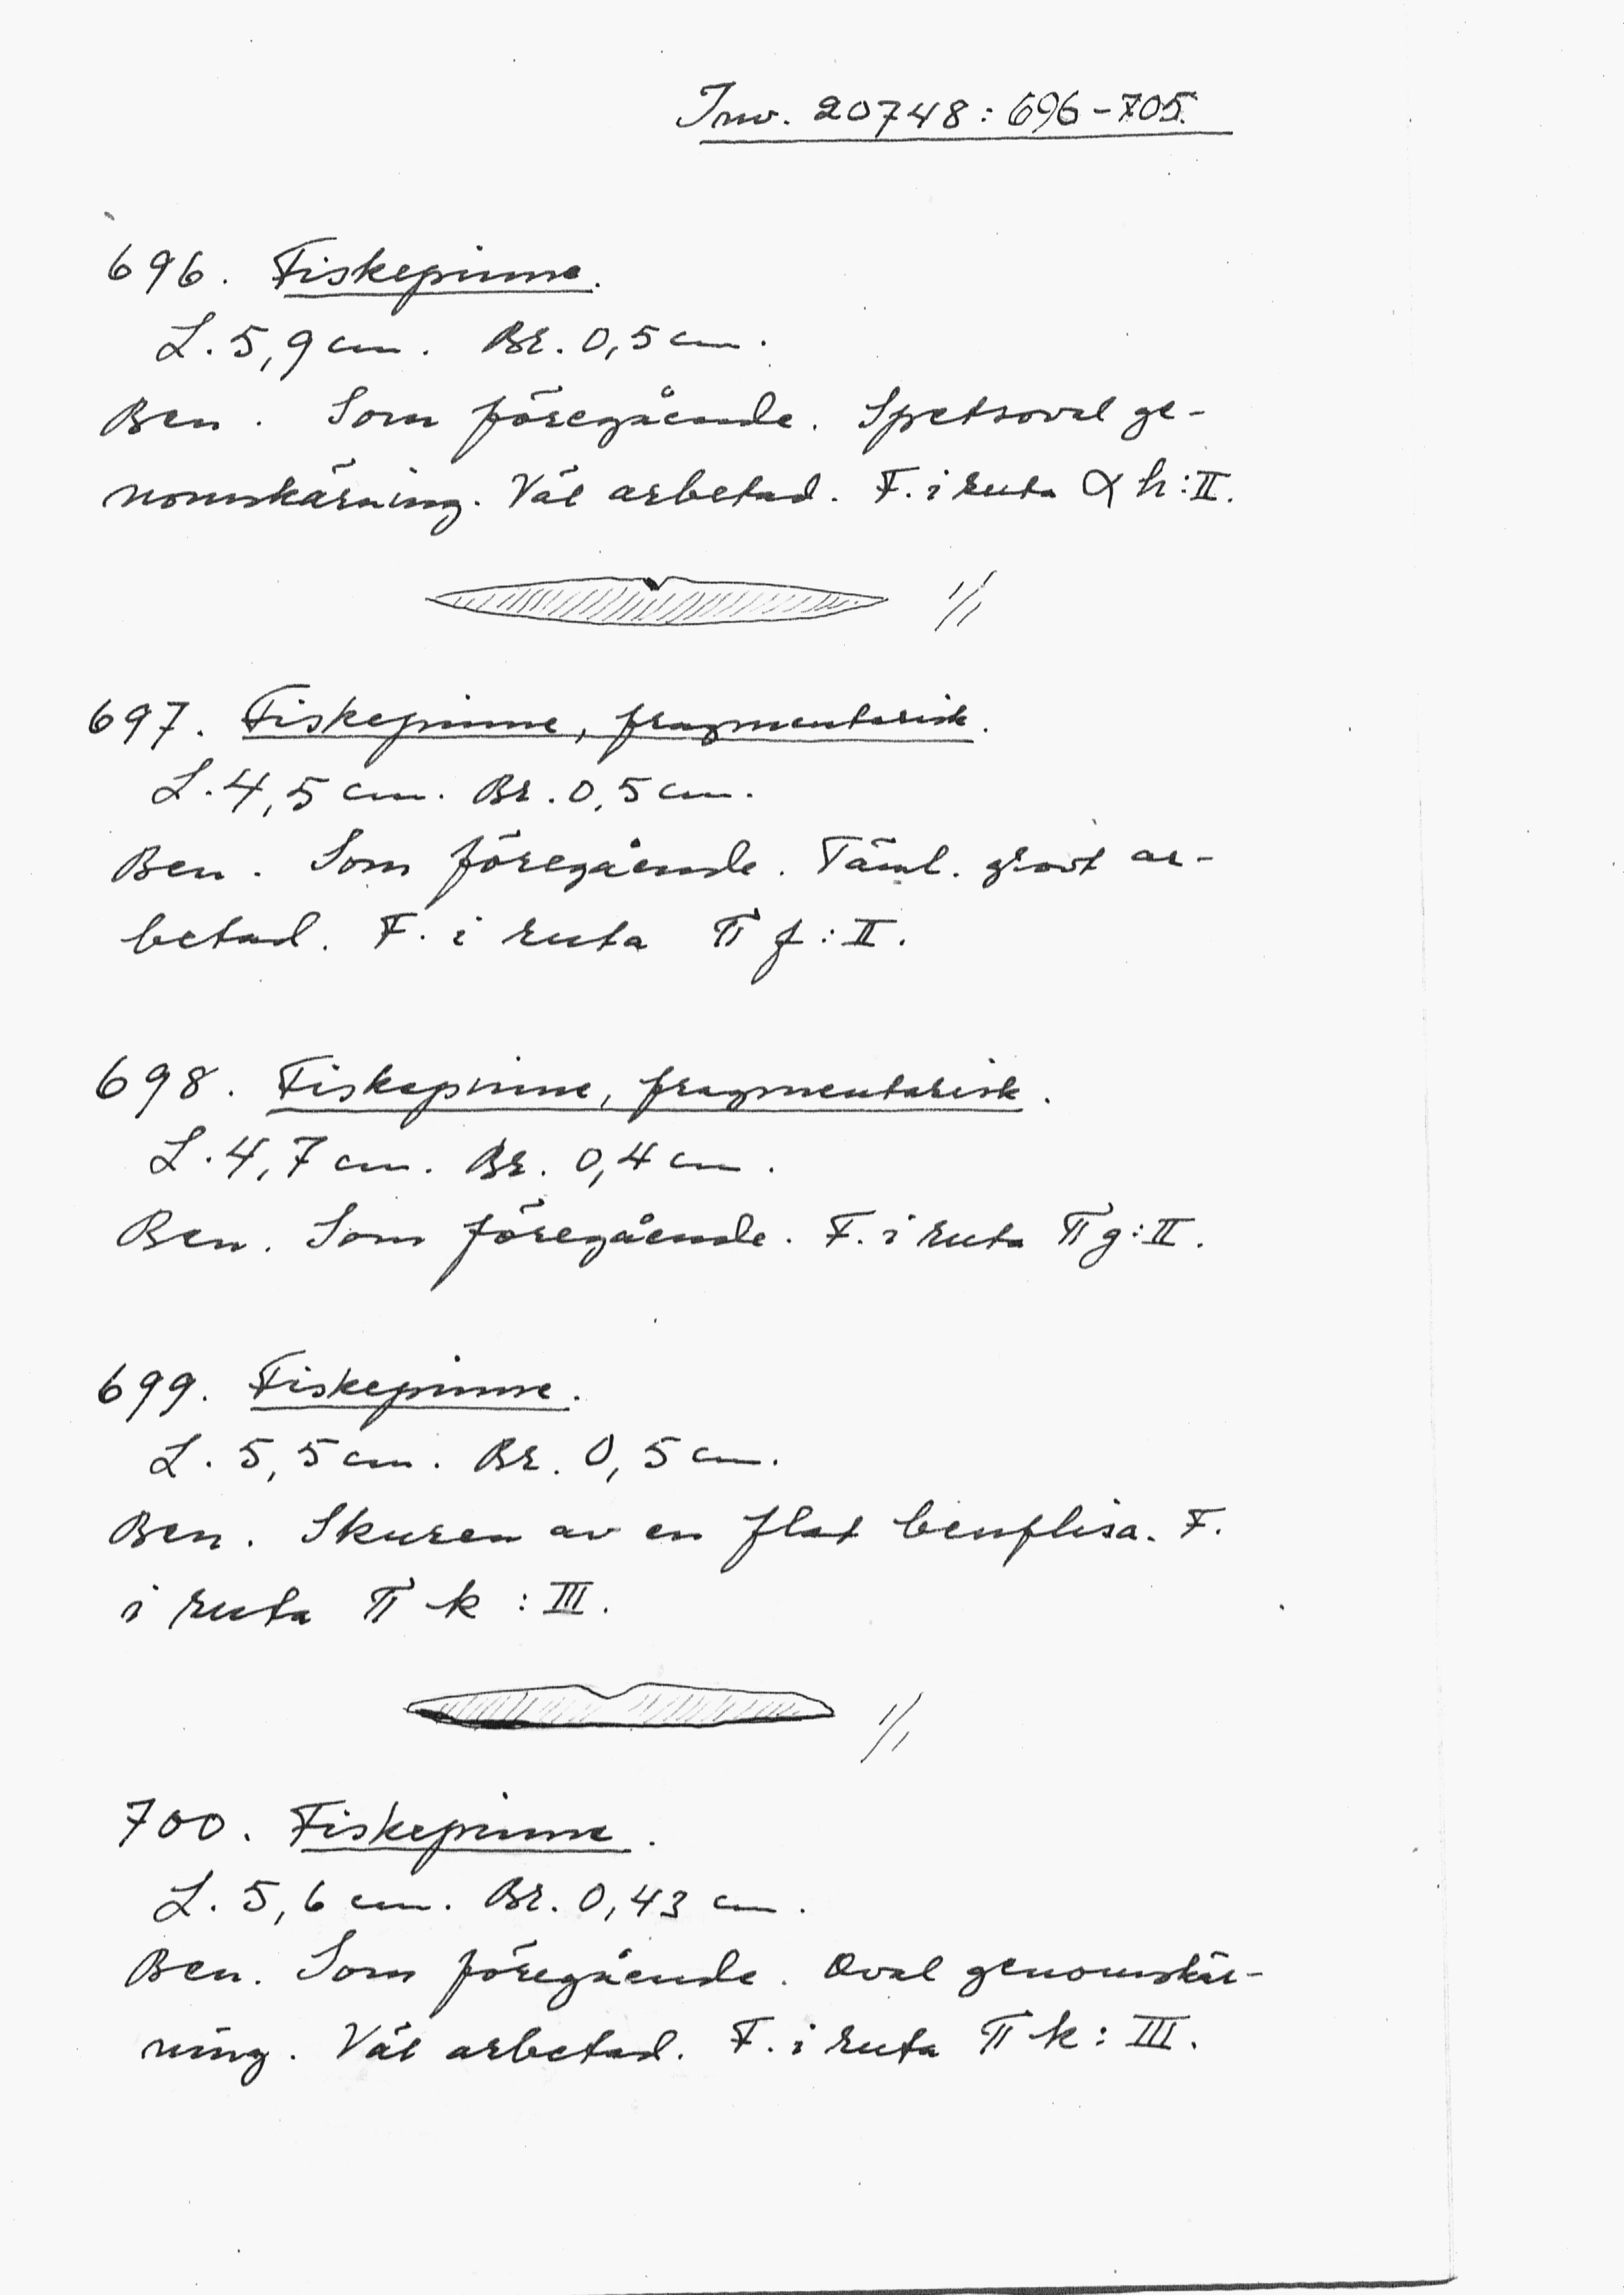 Inv. 20748:696-705.
696. Fiskepinne.
L. 5,9 cm. Br. 0,5 cm.
Ben. Som föregående. Spetsoval ge-
nomskärning. Väl arbetad. F. i ruta α h:II.
1/1
697. Fiskepinne, fragmentarisk.
L. 4,5 cm. Br. 0,5 cm.
Ben. Som föregående. Täml. grovt ar-
betad. F. i ruta π f:II.
698. Fiskepinne, fragmentarisk.
L. 4,7 cm. Br. 0,4 cm.
Ben. Som föregående. F. i ruta π g:II.
699. Fiskepinne.
L. 5,5 cm. Br. 0,5 cm.
Ben. Skuren av en flat benflisa. F.
i ruta π k:III.
1/1
700. Fiskepinne.
L. 5,6 cm. Br. 0,43 cm.
Ben. Som föregående. Oval genomskär-
ning. Väl arbetad. F. i ruta π k:III.